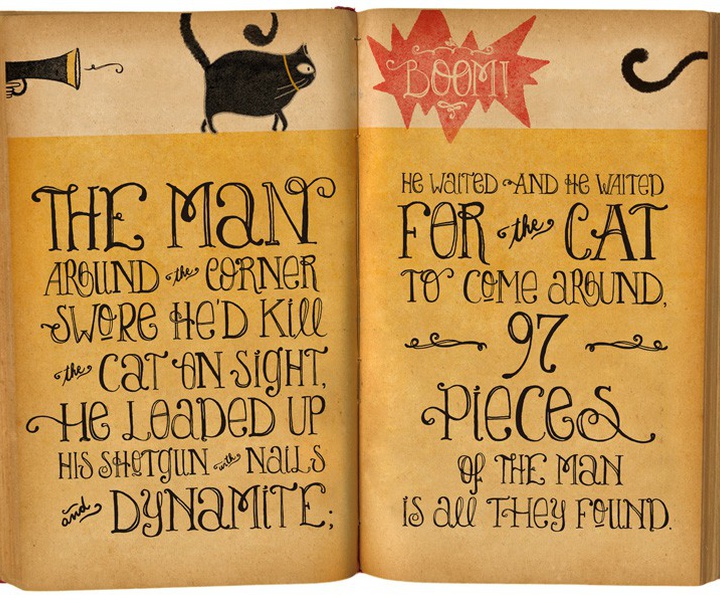 THE MAN
AROUND the CORNER
SWORE HE'D Kill
the CAT ON SIGHT,
HE LOADED UP
HIS SHOTGUN with NAILS
and DYNAMITE;
BOOM!
HE WAITED AND HE WAITED
FOR the CAT
TO COME AROUND,
97
PIECES
OF THE MAN
IS all THEY FOUND.